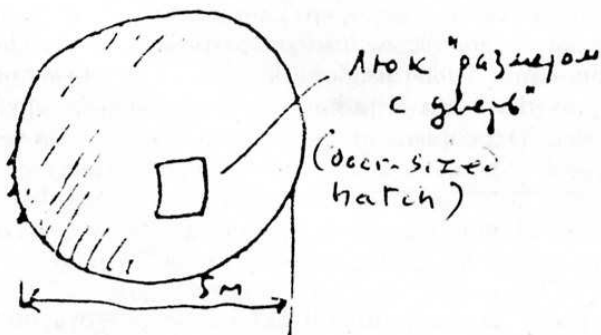 люк "размером
с дверь"
(door-sized
hatch)
5м